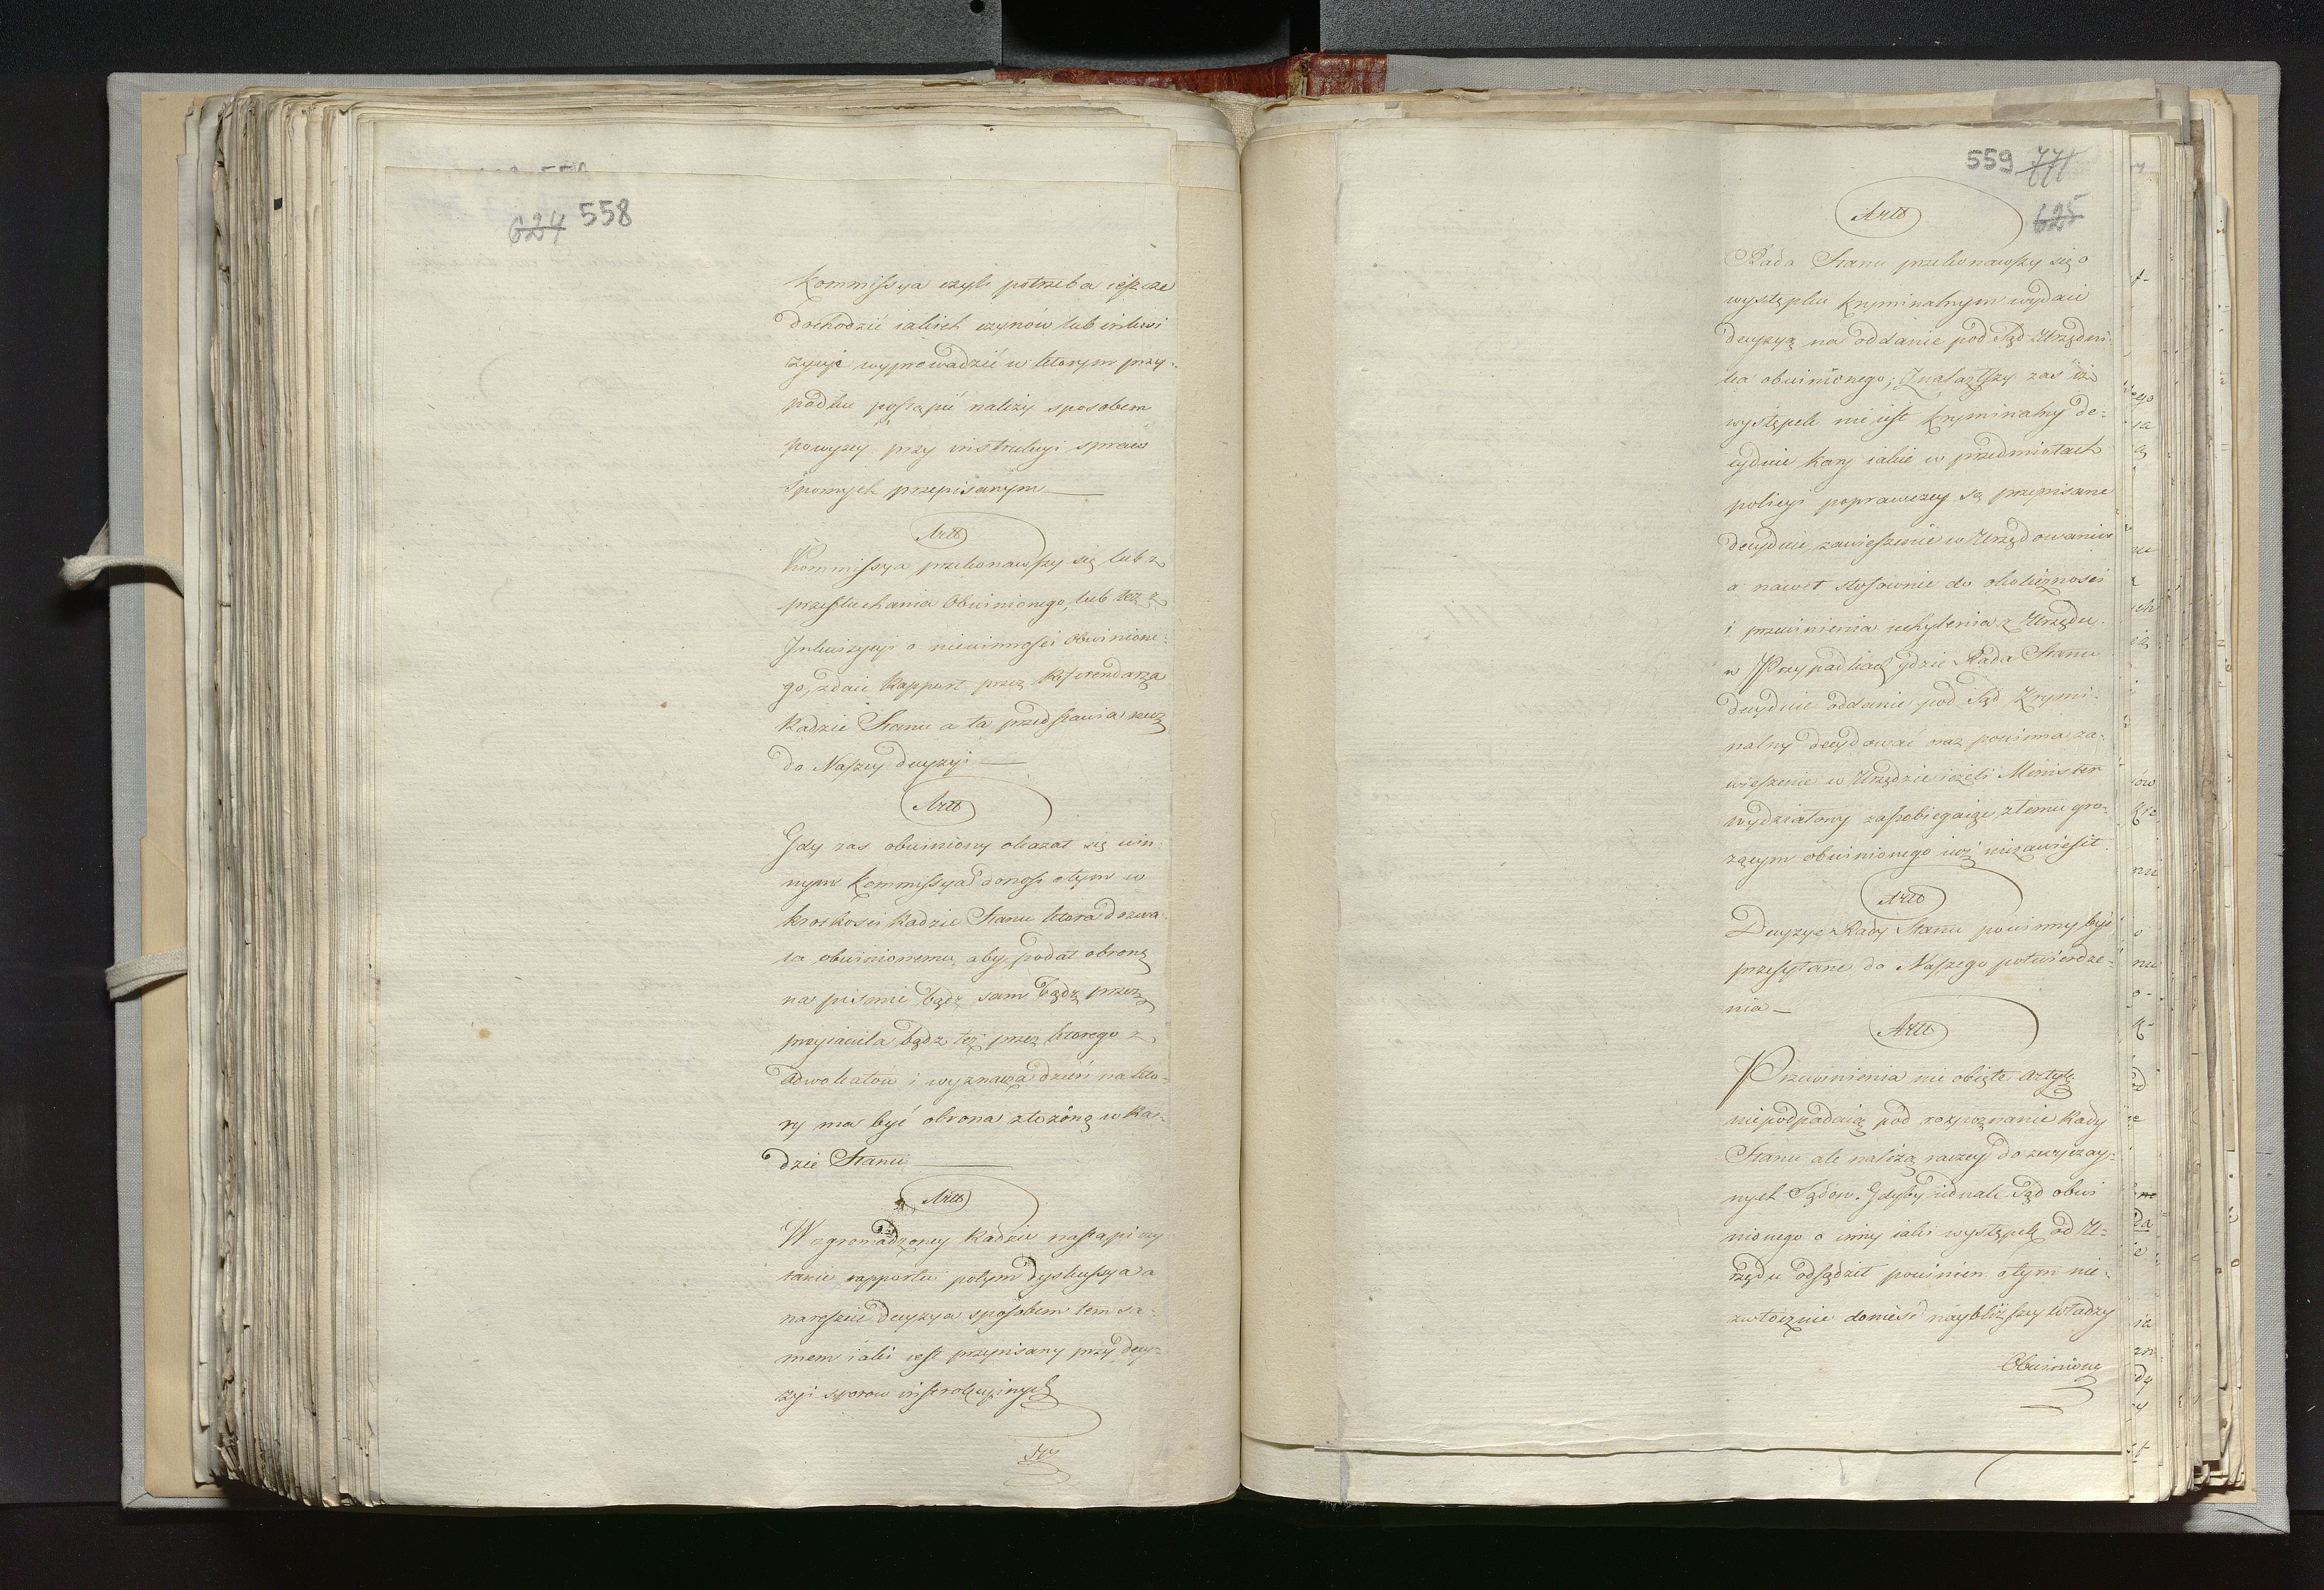 624 558
Kommissya czyli potrzeba ieszcze
dochodzić iakich czynów lub inkwi
zycyę wyprowadzić w ktorym przy-
padku postąpić należy sposobem
powyzey przy instrukcyi spraw
spornych przepisanym
Artt
Kommissya przekonawszy się lub z
przesłuchania Obwinionego, lub też z
Inkwizycyi o niewinności Obwinione-
go, zdaie Rapport przez Referendarza
Radzie Stanu a ta przedstawia rzecz
do Naszey decyzyi
Artt
Gdy zas obwiniony okazał się win-
nym Kommissya donosi o tym w
krotkości Radzie Stanu ktora dozwa-
la obwinionemu, aby podał obronę
na pismie bądz sam bądz przez
przyiaciela bądz też przez ktorego z
Adwokatow i wyznacza dzień na kto-
ry ma być obrona złożoną w Ra-
dzie Stanu
Artt
W zgromadzoney Radzie nastąpi czy-
tanie rapportu potym dyskussya a
nareszcie decyzya sposobem tem sa-
mem iaki iest przepisany przy decy-
zyi sporow instrukcyinych
559 771
625
Artt
Rada Stanu przekonawszy się o
występku kryminalnym wydaie
decyzyą na oddanie pod Sąd Urzędni-
ka obwinionego; Znalazłszy zaś iż
występek nie iest kryminalny de-
cyduie kary iakie w przedmiotach
policyi poprawczey są przepisane
decyduie zawieszenie w Urzędowaniu
a nawet stosownie do okoliczności
i przewinienia uchylenia z Urzędu.
w Przypadkach gdzie Rada Stanu
decyduie oddanie pod Sąd Krymi-
nalny decydować oraz powinna za-
wieszenie w Urzędzie ieżeli Minister
wydziałowy zapobiegaiąc złemu gro-
żącym obwinionego iuż niezawiesił.
Artt
Decyzye Rady Stanu powinny być
przesyłane do Naszego potwierdze-
nia
Artt
Przewinienia nie obięte Artyk:
niepodpadaią pod rozpoznanie Rady
Stanu ale należą raczey do zwyczay-
nych Sądow. Gdyby iednak Sąd obwi
nionego o inny iaki występek od U-
rzędu odsądził powinien o tym nie-
zwłocznie donieść naybliższey władzy
Obwiniony